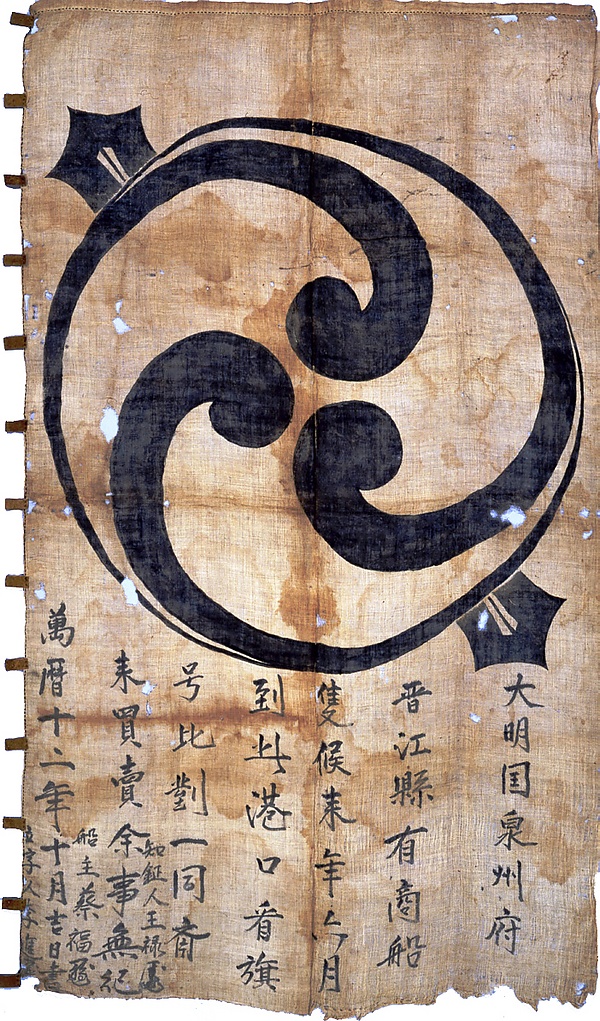 大明国泉州府
晋江縣有商船
隻候来年六月
到此港口看旗
号比對一同斎
来買賣余事無紀
知鉦人王禄
萬暦十二年十月吉日書
船主蔡福